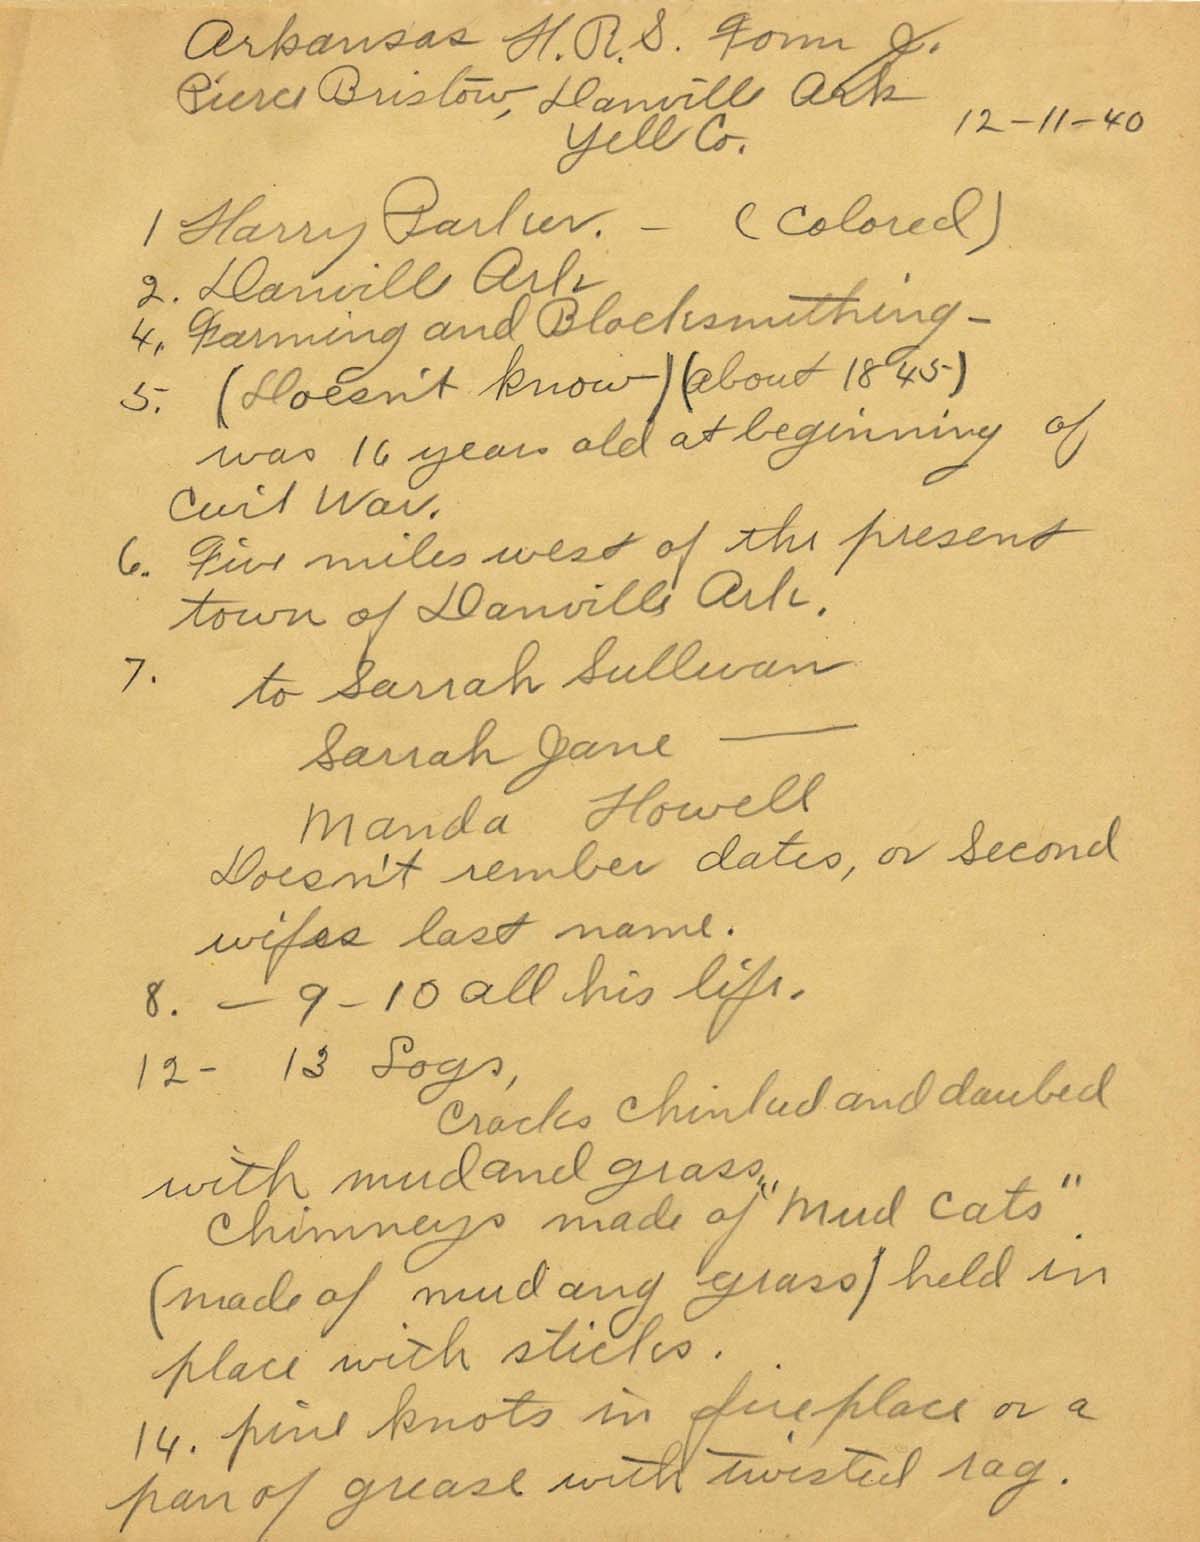 Arkansas H.R.S. Form J.
Pierce Bristow, Danville Ark
Yell Co.
12-11-40
1 Harry Parker. - (Colored)
2. Danville Ark
4. Farming and Blacksmithing -
5. (Doesn't know) (about 1845)
was 16 years old at beginning of
Civil War.
6. Five miles west of the present
town of Danville Ark.
7. to Sarrah Sullivan
Sarrah Jane —
Manda Howell
Doesn't rember dates, or second
wifes last name.
8. - 9 - 10 all his life.
12 - 13 Logs,
Cracks chinked and daubed
with mud and grass,
Chimneys made of "Mud Cats"
(made of mud ang grass) held in
place with sticks.
14. pine knots in fireplace or a
pan of grease with twisted rag.